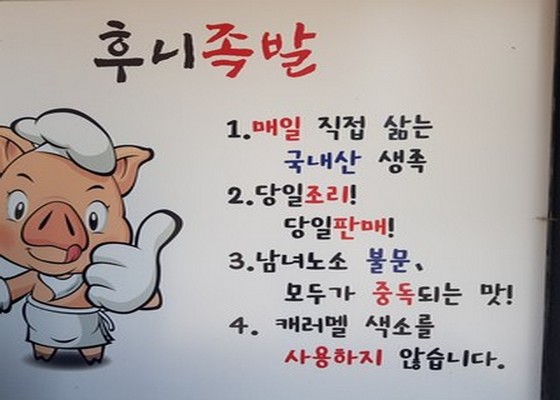 후니족발
1.매일 직접 삶는
국내산 생족
2.당일조리!
당일판매!
3.남녀노소 불문,
모두가 중독되는 맛!
4. 캐러멜 색소를
사용하지 않습니다.